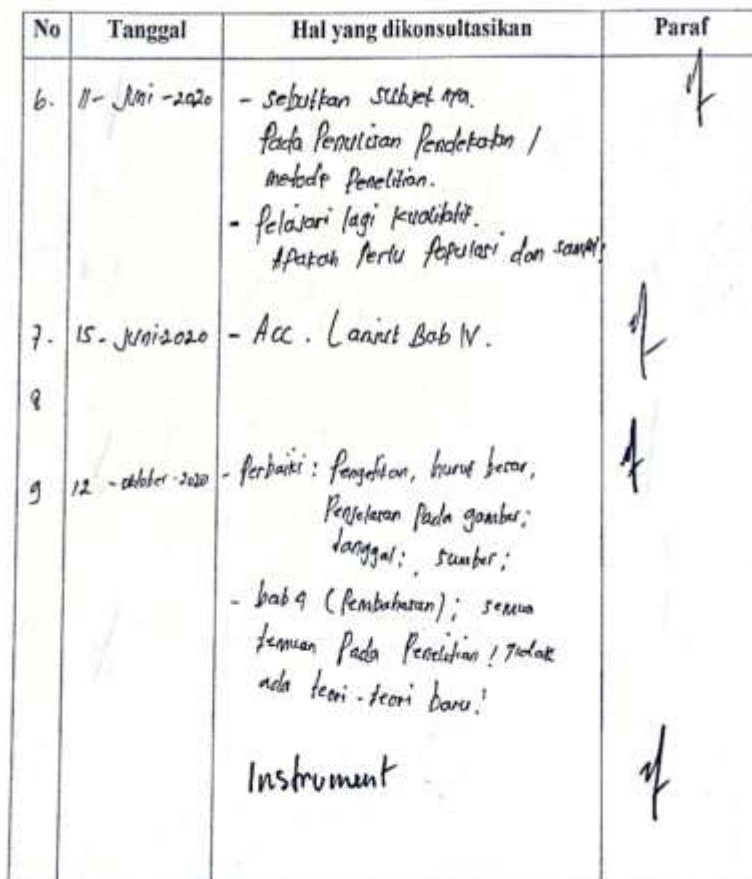 No Tanggal Hal yang dikonsultasikan Paraf
6. 11- Juni -2020 - sebutkan subjek nya.
Pada Penulisan Pendekatan /
metode Penelitian.
- Pelajari lagi kualitatif.
Apakah Perlu Populasi dan sampel?
7. 15 - Juni 2020 - Acc. Lanjut Bab IV.
8
9 12 - oktober - 2020 - Perbaiki : Pengetikan, huruf besar;
Penjelasan Pada gambar;
tanggal; sumber;
- bab 4 (Pembahasan); semua
temuan Pada Penelitian! Tidak
ada teori-teori baru!
Instrument